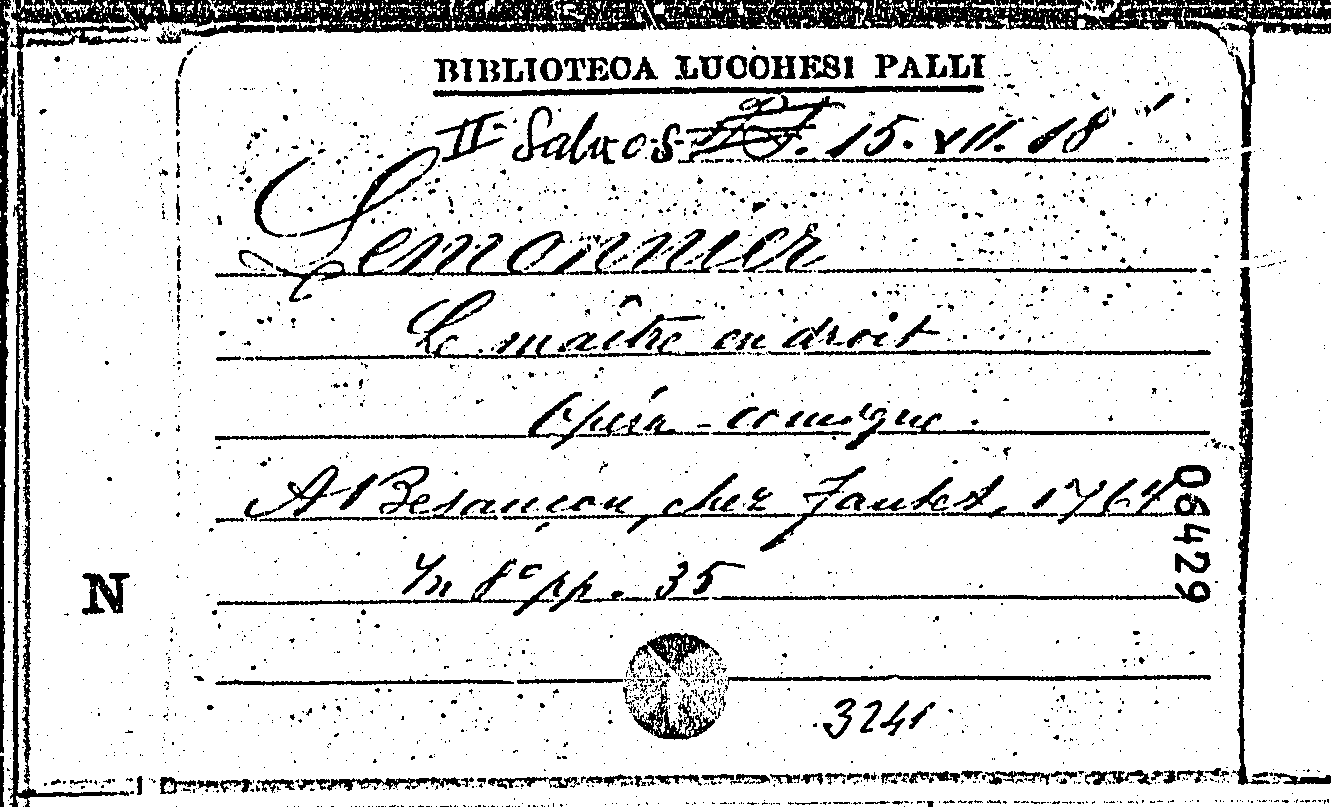 BIBLIOTECA LUCCHESI PALLI
II Salxos 15. VII. 18
Lemonnier
Le maître en droit
Opéra-comique
A Besançon, chez Fantet, 1764
In 8° pp. 35
N
06429
3241